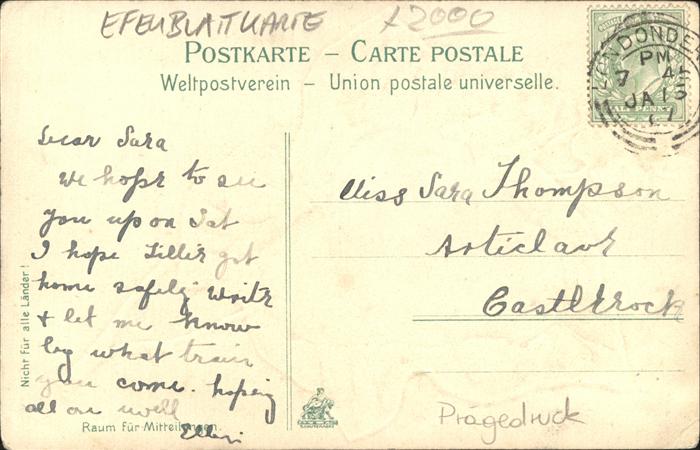 EFEUBLATTKARTE £2000
POSTKARTE – CARTE POSTALE
Weltpostverein – Union postale universelle.
LONDONDE
PM
7 45
JA 15
07
HALFPENNY
Dear Sara
We hope to see
you up on Sat
I hope Lillie got
home safely write
& let me know
by what train
you come. hoping
all are well
Ellen
Miss Sara Thompson
Articlave
Castlerock
Nicht für alle Länder!
Raum für Mitteilungen.
Prägedruck